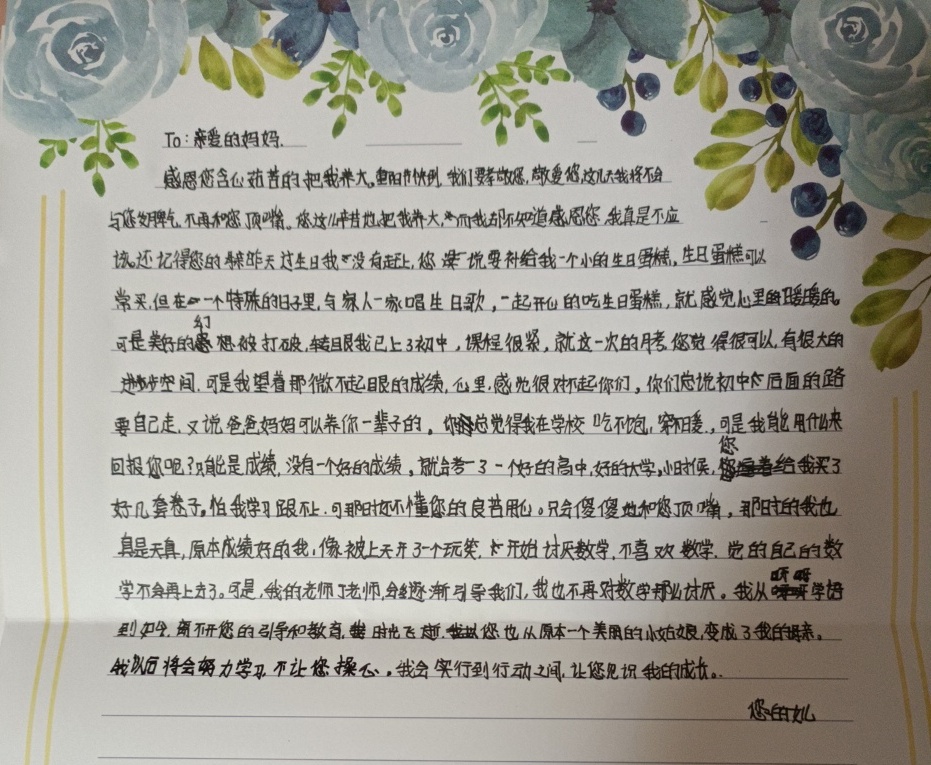 To:亲爱的妈妈.
感恩您含心茹苦的把我养大。重阳节快到,我们要孝敬您,敬爱您,这几天我将不会
与您发脾气,不再和您顶嘴。您这么辛苦地把我养大,而我却不知道感恩您,我真是不应
该。还记得您的 昨天过生日我没有赶上,您说要补给我一个小的生日蛋糕,生日蛋糕可以
常买,但在一个特殊的日子里,与家人一家唱生日歌,一起开心的吃生日蛋糕,就感觉心里暖暖的。
可是美好的幻想被打破,转眼我已上了初中,课程很紧,就这一次的月考,您觉得很可以,有很大的
进步空间,可是我望着那微不起眼的成绩,心里感觉很对不起你们,你们总说初中后面的路
要自己走,又说爸爸妈妈可以养你一辈子的。您总觉得我在学校吃不饱,穿不暖,可是我能用什么来
回报您呢?只能是成绩,没有一个好的成绩,就会考了一个好的高中,好的大学,小时候,您给我买了
好几套卷子。怕我学习跟不上,可那时还不懂您的良苦用心。只会傻傻地和您顶嘴,那时的我也
真是天真,原本成绩好的我,像被上天开了一个玩笑,开始讨厌数学,不喜欢数学,觉的自己的数
学不会再上去了。可是,我的老师丁老师,会逐渐引导我们,我也不再对数学那么讨厌。我从呀呀学语
到如今,离不开您的引导和教育,时光飞逝,您也从原本一个美丽的小姑娘,变成了我的母亲。
我以后将会努力学习,不让您操心。我会实行到行动之间,让您见识我的成长。
您的女儿